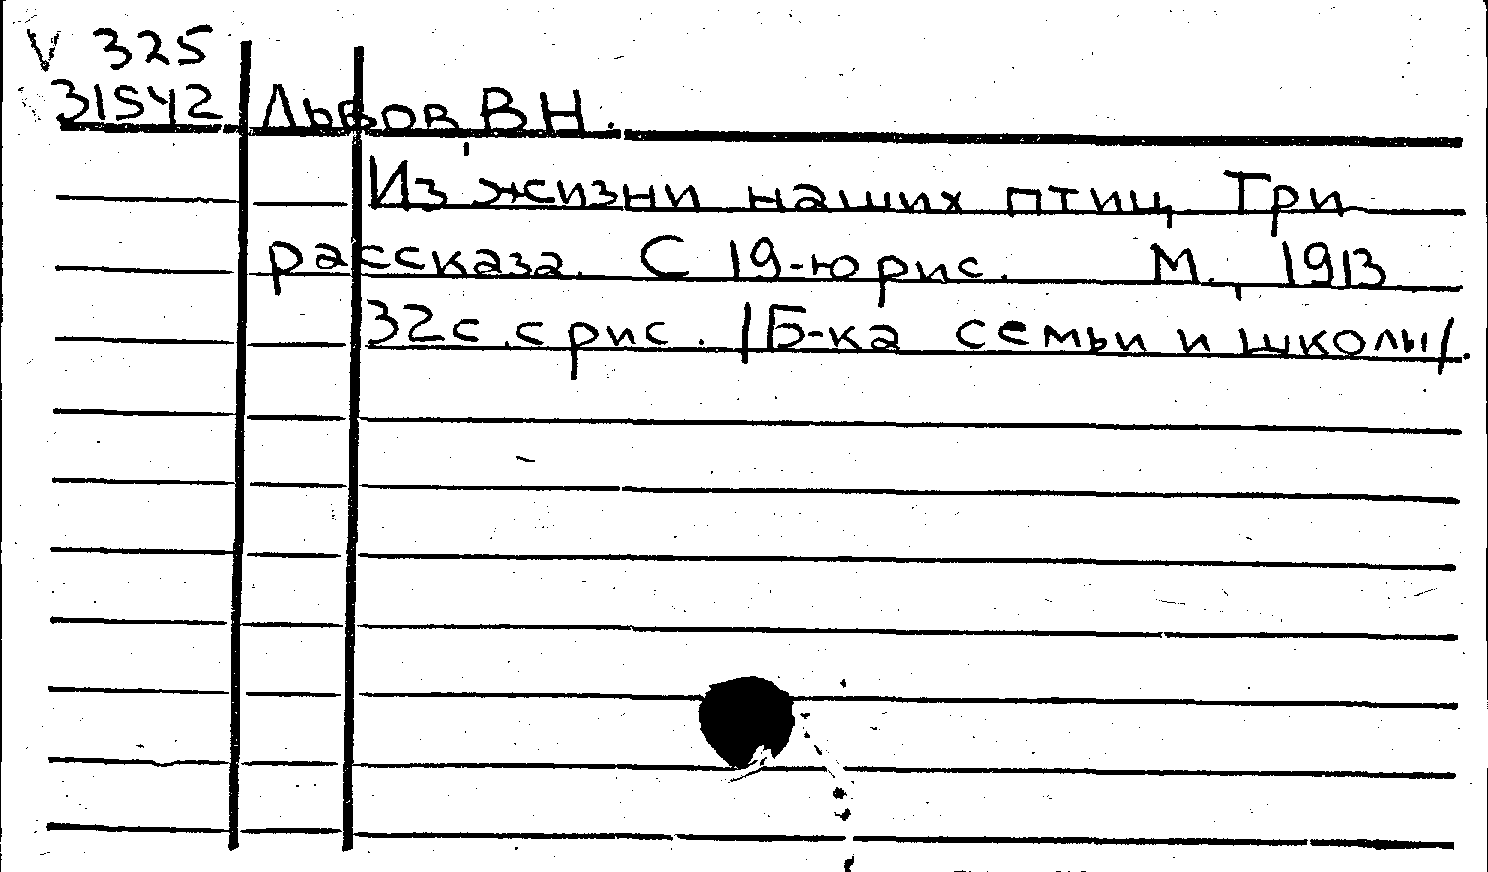 V 325
31542 Львов, В.Н.
Из жизни наших птиц. Три
рассказа. С 19-ю рис. М., 1913
32 с. с рис. /Б-ка семьи и школы/.